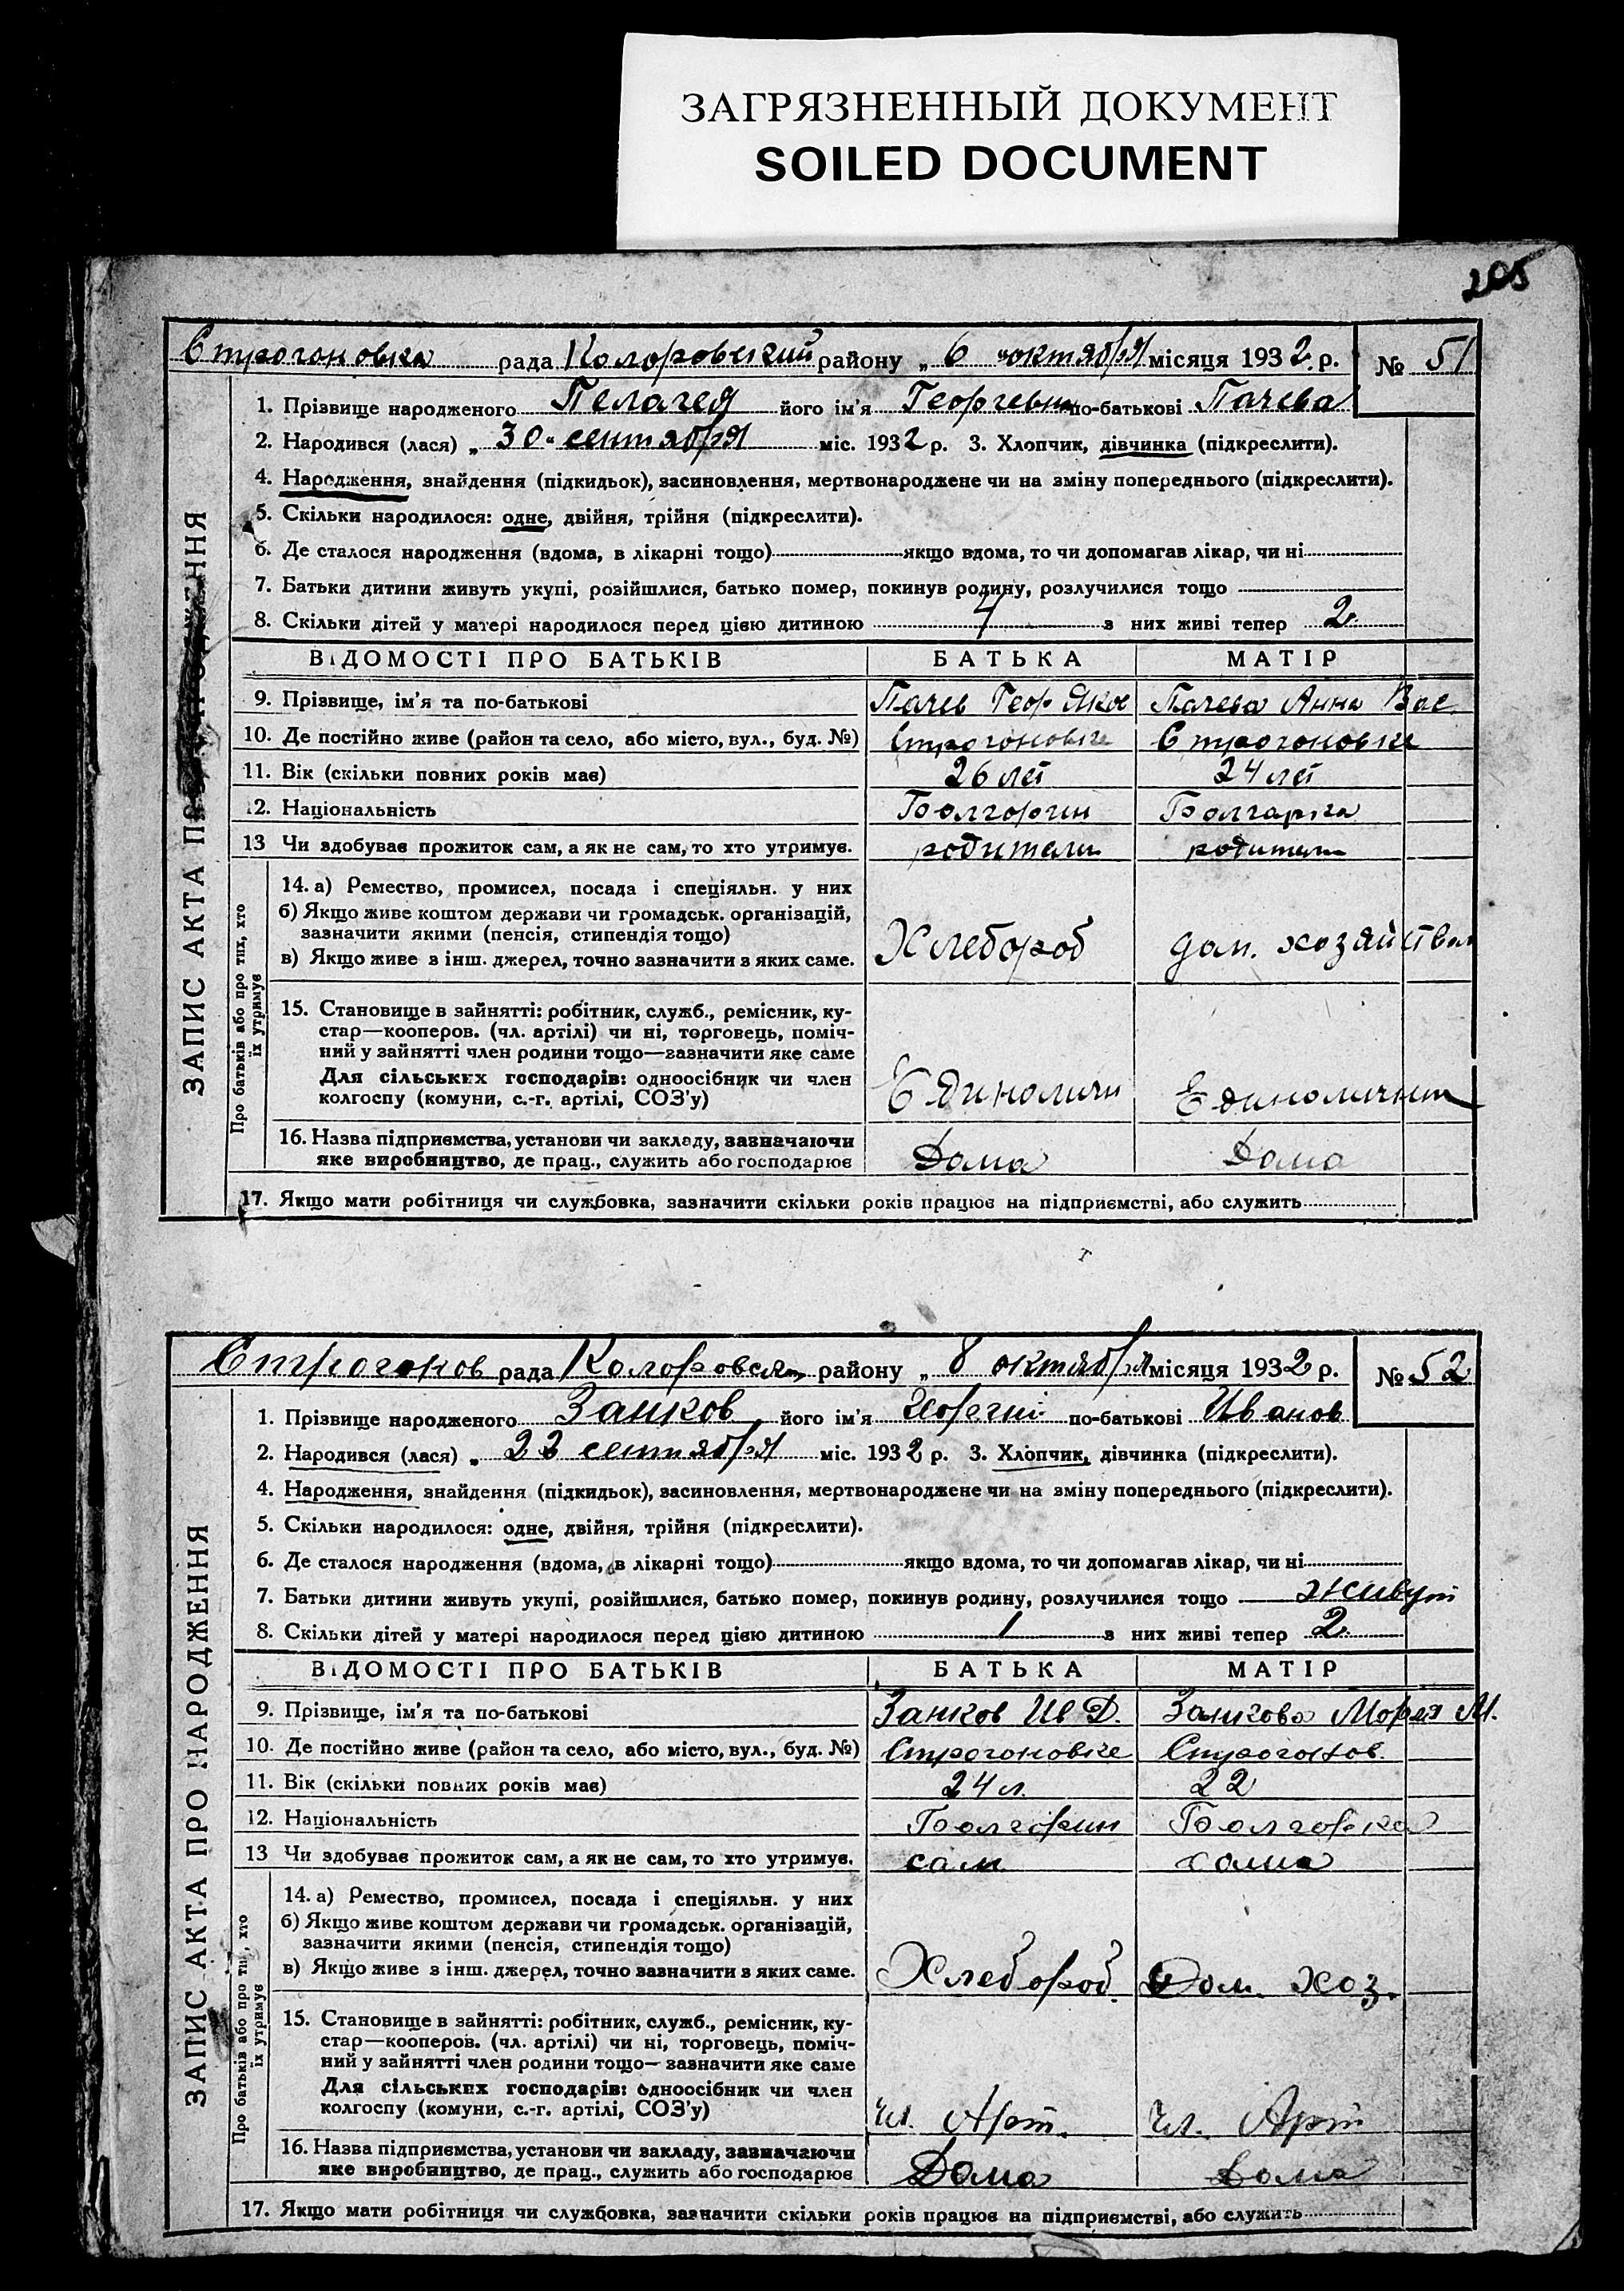 ЗАГРЯЗНЕННЫЙ ДОКУМЕНТ
SOILED DOCUMENT
205
Строгоновка рада Колоровский району „ 6 " октября місяця 1932 р. № 51
1. Прізвище народженого Пелагея його ім'я Георгевна по-батькові Пачева
2. Народився (лася) „ 30 " сентября міс. 1932 р. 3. Хлопчик, дівчинка (підкреслити).
4. Народження, знайдення (підкидьок), засиновлення, мертвонароджене чи на зміну попереднього (підкреслити).
5. Скільки народилося: одне, двійня, трійня (підкреслити).
6. Де сталося народження (вдома, в лікарні тощо) якщо вдома, то чи допомагав лікар, чи ні
7. Батьки дитини живуть укупі, розійшлися, батько помер, покинув родину, розлучилися тощо
8. Скільки дітей у матері народилося перед цією дитиною з них живі тепер 2
ВІДОМОСТІ ПРО БАТЬКІВ БАТЬКА МАТІР
9. Прізвище, ім'я та по-батькові Пачев Геор Яков Пачева Анна Вас.
10. Де постійно живе (район та село, або місто, вул., буд. №) Строгоновке Строгоновке
11. Вік (скільки повних років має) 26 лет 24 лет
12. Національність Болгорин Болгарка
13 Чи здобуває прожиток сам, а як не сам, то хто утримує. родители родители
14. а) Ремество, промисел, посада і спеціяльн. у них
б) Якщо живе коштом держави чи громадськ. організацій,
зазначити якими (пенсія, стипендія тощо)
в) Якщо живе з інш. джерел, точно зазначити з яких саме. Хлебороб дом. хозяйством
15. Становище в зайнятті: робітник, служб., ремісник, ку-
стар—кооперов. (чл. артілі) чи ні, торговець, поміч-
ний у зайнятті член родини тощо—зазначити яке саме
Для сільських господарів: одноосібник чи член
колгоспу (комуни, с.-г. артілі, СОЗ'у) Единоличн Единоличник
16. Назва підприємства, установи чи закладу, зазначаючи
яке виробництво, де прац., служить або господарює Дома Дома
17. Якщо мати робітниця чи службовка, зазначити скільки років працює на підприємстві, або служить
ЗАПИС АКТА ПРО НАРОДЖЕННЯ
Про батьків або про тих, хто
їх утримує
Строгонов рада Колоровский району „ 8 октября місяця 1932 р. № 52
1. Прізвище народженого Занков його ім'я Георгий по-батькові Иванов
2. Народився (лася) „ 22 сентября міс. 1932 р. 3. Хлопчик, дівчинка (підкреслити).
4. Народження, знайдення (підкидьок), засиновлення, мертвонароджене чи на зміну попереднього (підкреслити).
5. Скільки народилося: одне, двійня, трійня (підкреслити).
6. Де сталося народження (вдома, в лікарні тощо) якщо вдома, то чи допомагав лікар, чи ні
7. Батьки дитини живуть укупі, розійшлися, батько помер, покинув родину, розлучилися тощо живут
8. Скільки дітей у матері народилося перед цією дитиною 1 з них живі тепер 2
ВІДОМОСТІ ПРО БАТЬКІВ БАТЬКА МАТІР
9. Прізвище, ім'я та по-батькові Занков Ив Д. Занкова Мория М.
10. Де постійно живе (район та село, або місто, вул., буд. №) Строгоновке Строгонов.
11. Вік (скільки повних років має) 24 л. 22
12. Національність Болгорин Болгорка
13 Чи здобуває прожиток сам, а як не сам, то хто утримує. сам сама
14. а) Ремество, промисел, посада і спеціяльн. у них
б) Якщо живе коштом держави чи громадськ. організацій,
зазначити якими (пенсія, стипендія тощо)
в) Якщо живе з інш. джерел, точно зазначити з яких саме. Хлебороб. Дом. хоз.
15. Становище в зайнятті: робітник, служб., ремісник, ку-
стар—кооперов. (чл. артілі) чи ні, торговець, поміч-
ний у зайнятті член родини тощо—зазначити яке саме
Для сільських господарів: одноосібник чи член
колгоспу (комуни, с.-г. артілі, СОЗ'у) чл. Арт. чл. Арт
16. Назва підприємства, установи чи закладу, зазначаючи
яке виробництво, де прац., служить або господарює Дома Дома
17. Якщо мати робітниця чи службовка, зазначити скільки років працює на підприємстві, або служить
ЗАПИС АКТА ПРО НАРОДЖЕННЯ
Про батьків або про тих, хто
їх утримує